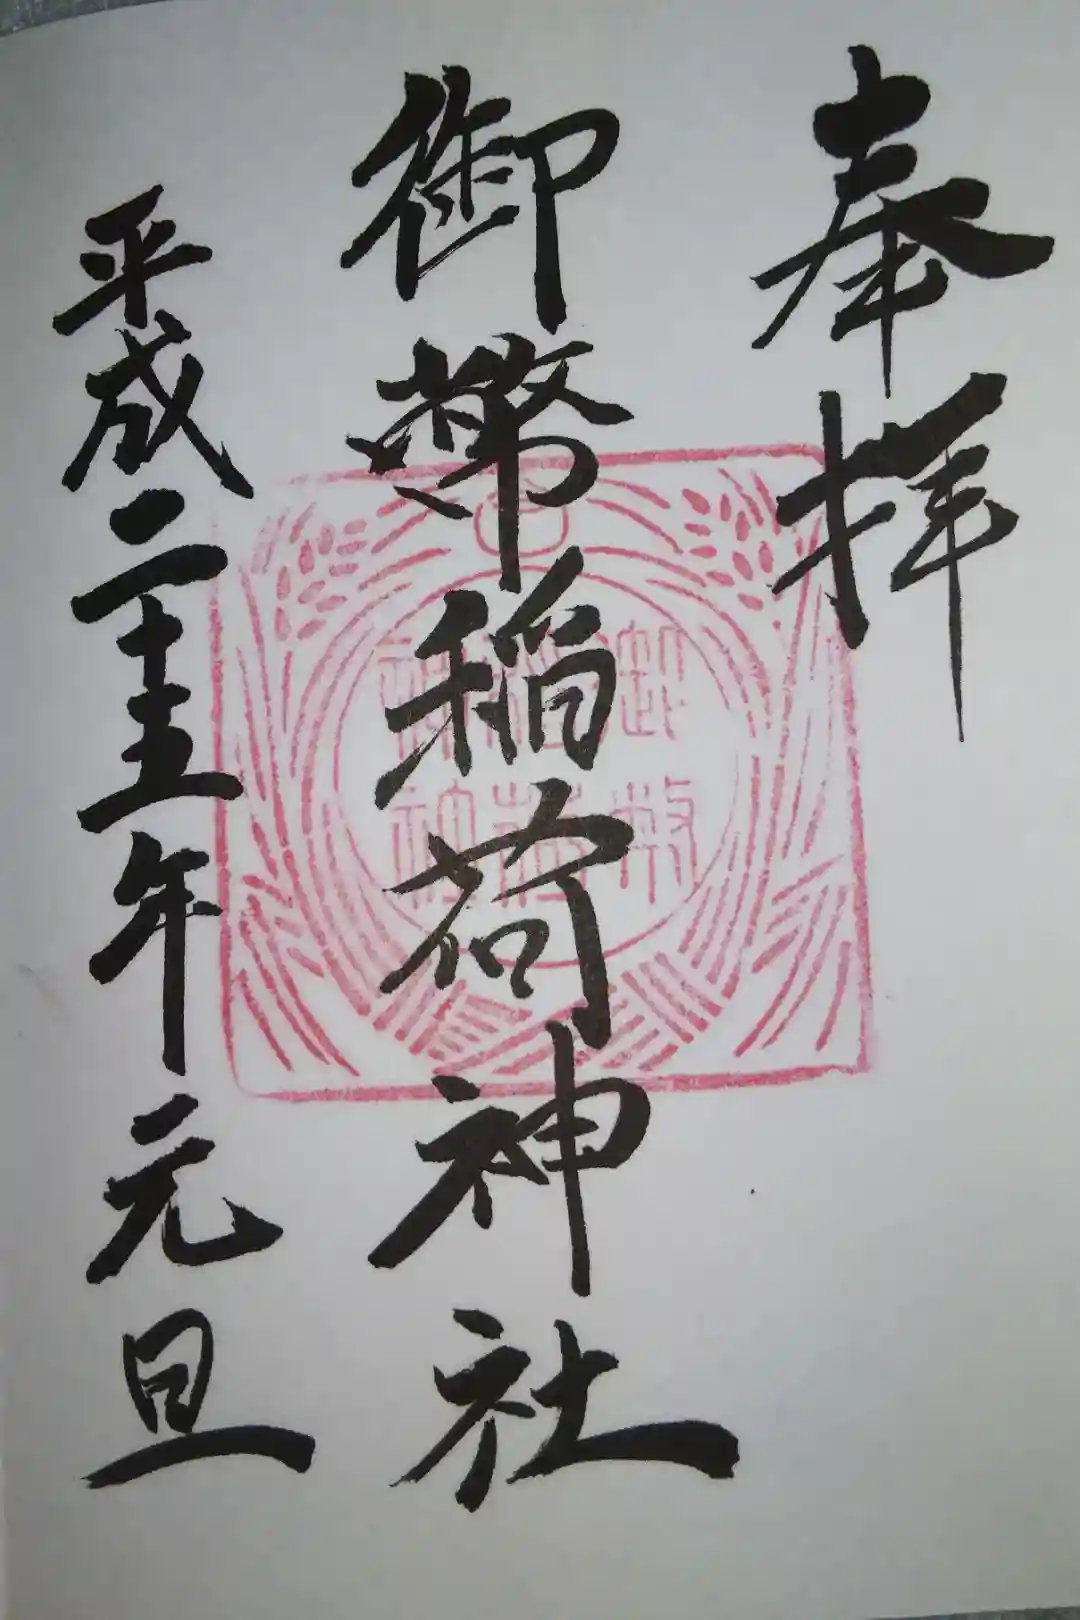 奉拝
御幣稲荷神社
平成二十五年元旦
御幣
稲荷
神社